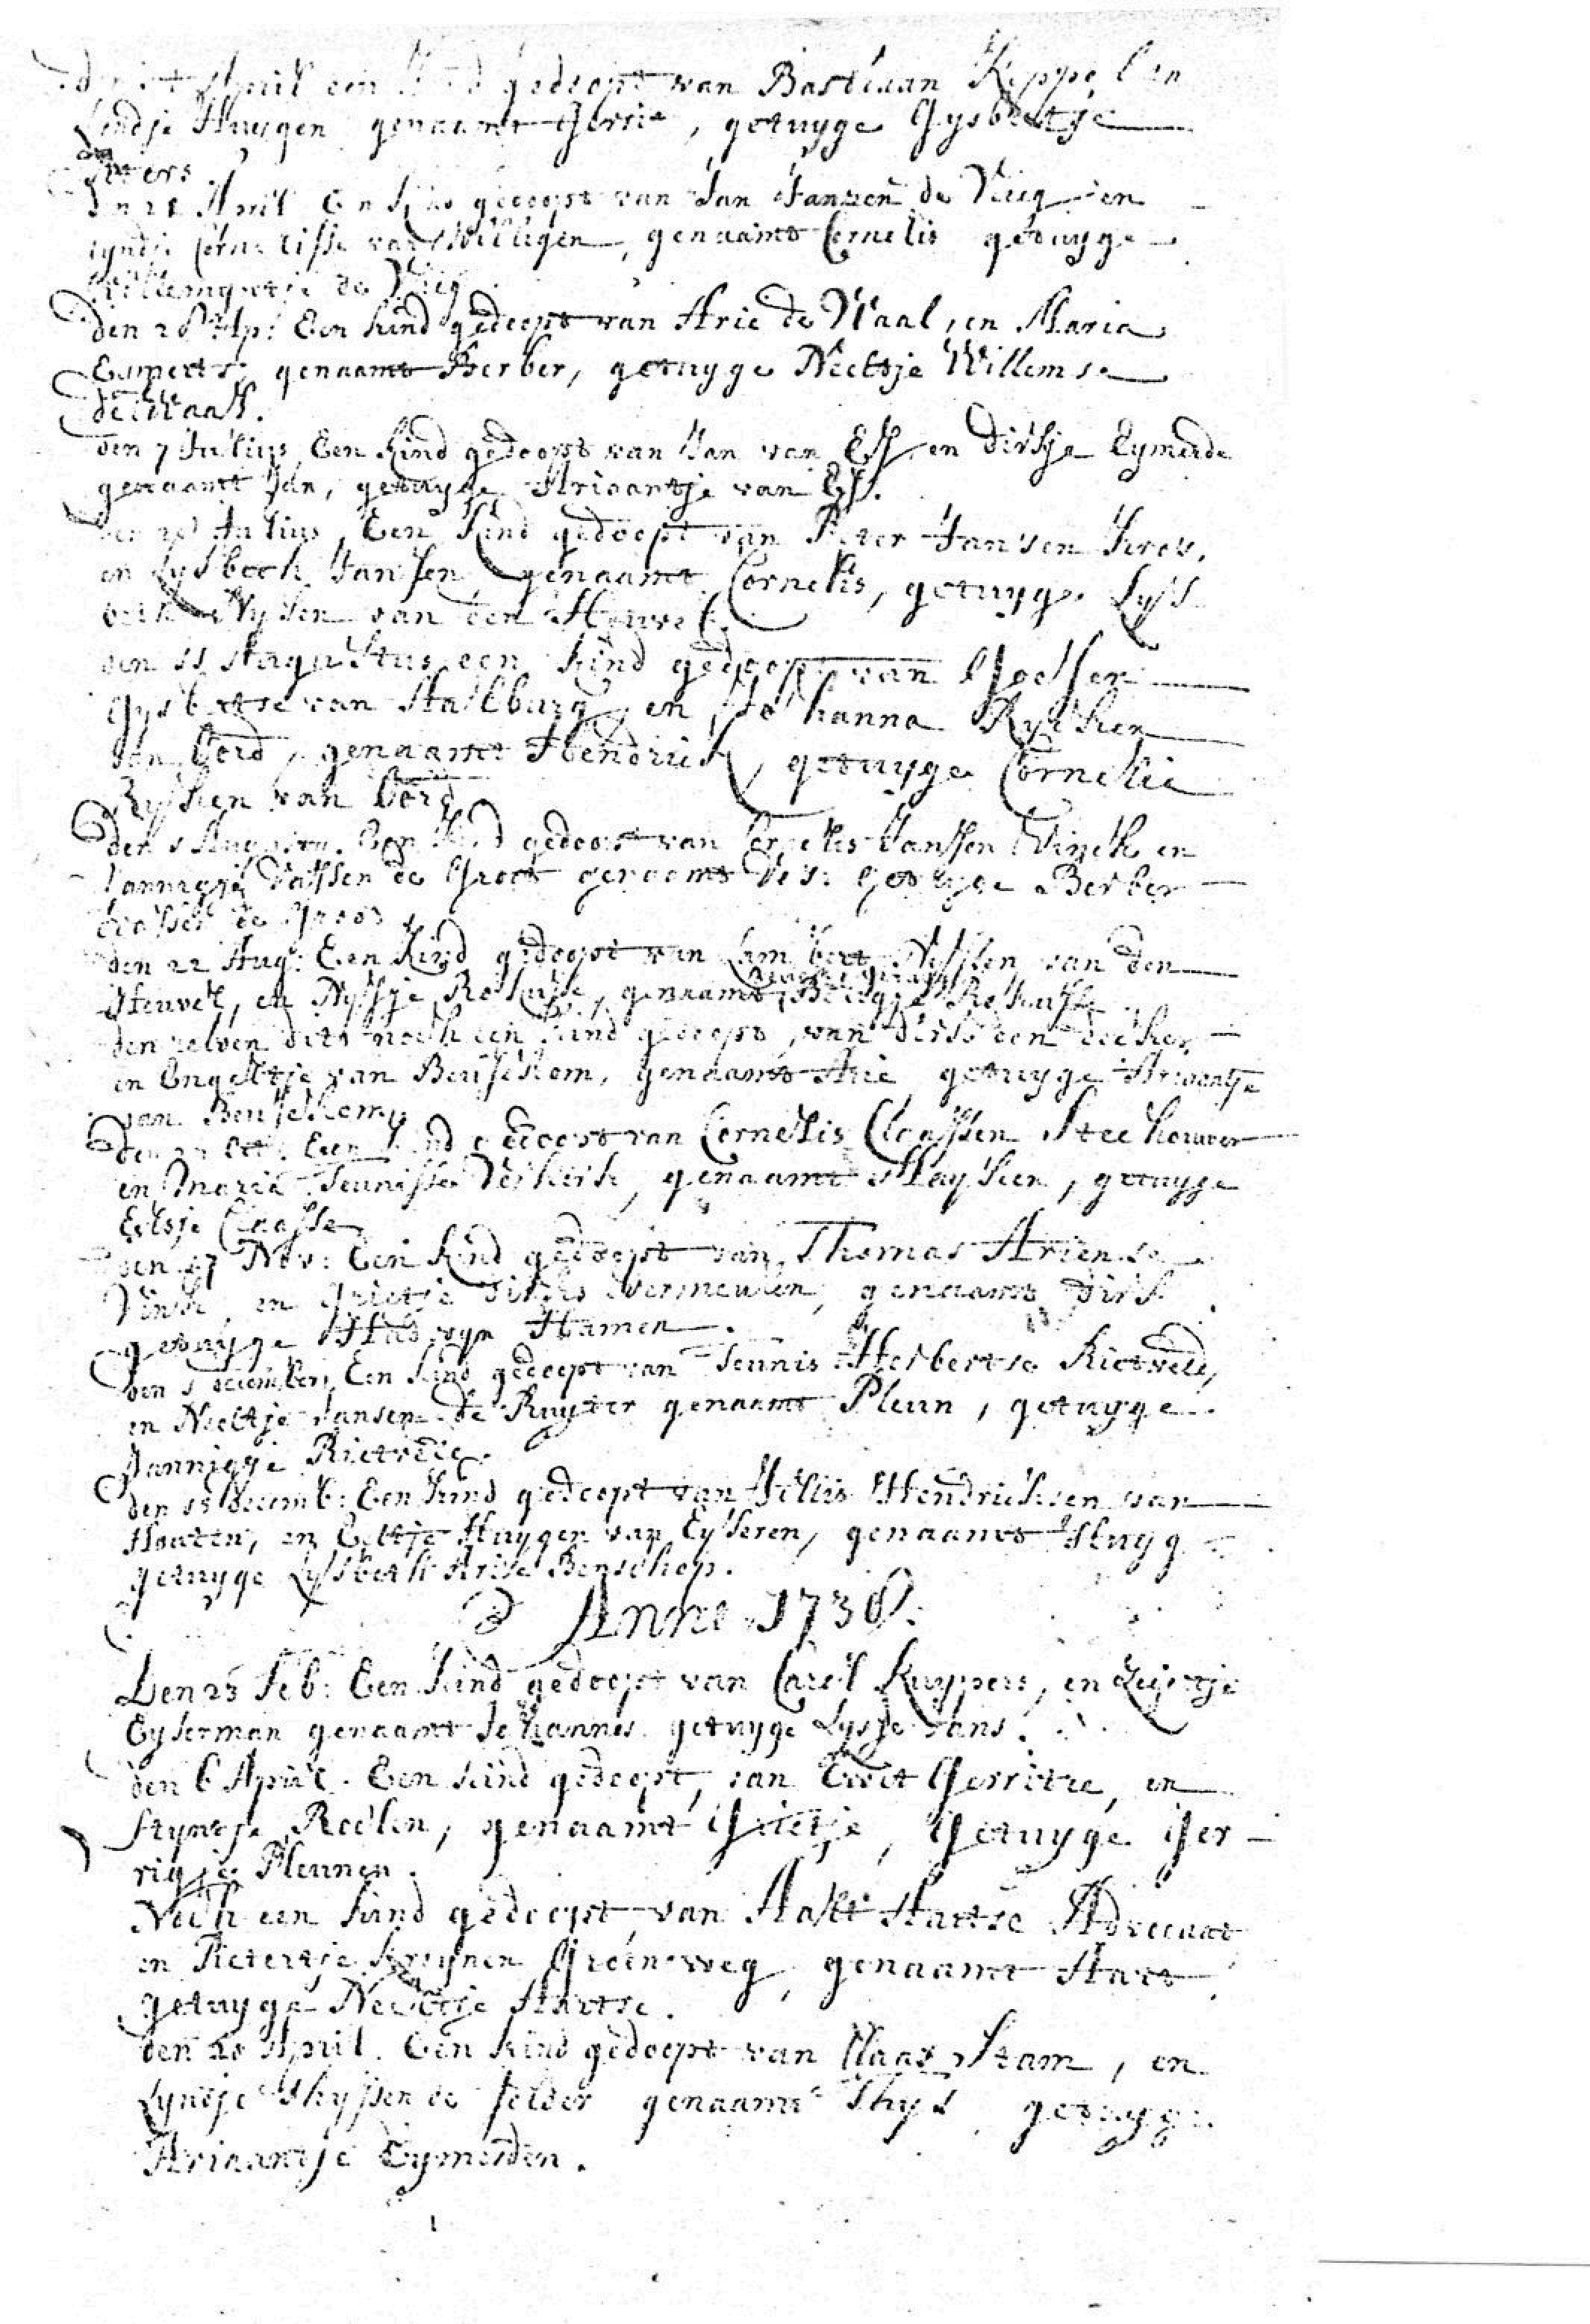 April een kind gedoopt van Bastiaan Keppel en
Lendje Huygen genaamt Gerrit, getuyge Gysbertje
den 21 April Een kind gedoopt van Jan Janzen de Vrieg en
Cornelisse van Willigen, genaamt Cornelis getuyge
Willemyntje de Vrieg
den 28 Ap: Een kind gedoopt van Arie de Waal, en Maria
genaamt Berber, getuyge Neeltje Willemse
de Waal.
den 7 Julius Een kind gedoopt van Jan van Ess en dirkje Eymerde
genaamt Jan, getuyge Ariaantje van Ess.
den Julius, Een kind gedoopt van Peter Jansen
en Lysbeth Jansen, genaamt Cornelis, getuyge Lys
beth Nyssen van den Heuvel.
den 11 Augustus een kind gedoopt van Goessen
Gysbertse van Stalburg, en Johanna Rycken
van Oord, genaamt Hendrick, getuyge Cornelia
Rycken van Oord
den Een kind gedoopt van Cornelis Janssen Vinck en
Jannigje de Groot genaamt getuyge Berber
de Groot
den 22 Aug: Een kind gedoopt van Lambert Nyssen van den
Heuvel, en Nysje genaamt
den zelven dito noch een kind gedoopt, van dirk den
en Engeltje van Beusekom, genaamt Arie getuyge Ariaantje
van Beusekom
den Oct: Een kind gedoopt van Cornelis Claassen Steehouwer
en Maria Teunisse Verkerk, genaamt Mayken, getuyge
Eelsje Claasse
den 27 Nov: Een kind gedoopt van Thomas Ariense
Vinck en Grietje dirks Vermeulen, genaamt dirk
getuyge Hamen.
den december, Een kind gedoopt van Teunis Herbertse Rietveld,
en Neeltje Jansen de Ruyter genaamt Pleun, getuyge
Jannigje Rietveld.
den 15 decemb: Een kind gedoopt van Jillis Hendricksen van
Houten, en Eeltje Huygen van Eyteren, genaamt Huyg
getuyge Lysbeth Arise Benschop.
Anno 1736.
Den 25 Feb: Een kind gedoopt van Carel Kuypers, en
Eyserman genaamt Johannes getuyge Lysje Jans.
den 6 April. Een kind gedoopt, van Evert Gerritze, en
Styntje Roelen, genaamt Grietje, Getuyge Ger-
rigje Pleunen.
Noch een kind gedoopt van Aalt Aartse Advocaat
en Pietertje Krynen Groeneweg, genaamt Aart
getuyge Neeltje Aartse.
den 20 April. Een kind gedoopt van Klaas Stam, en
Lyntje Thyssen de Jelder genaamt Thys getuyge
Ariaantje Eymerden.